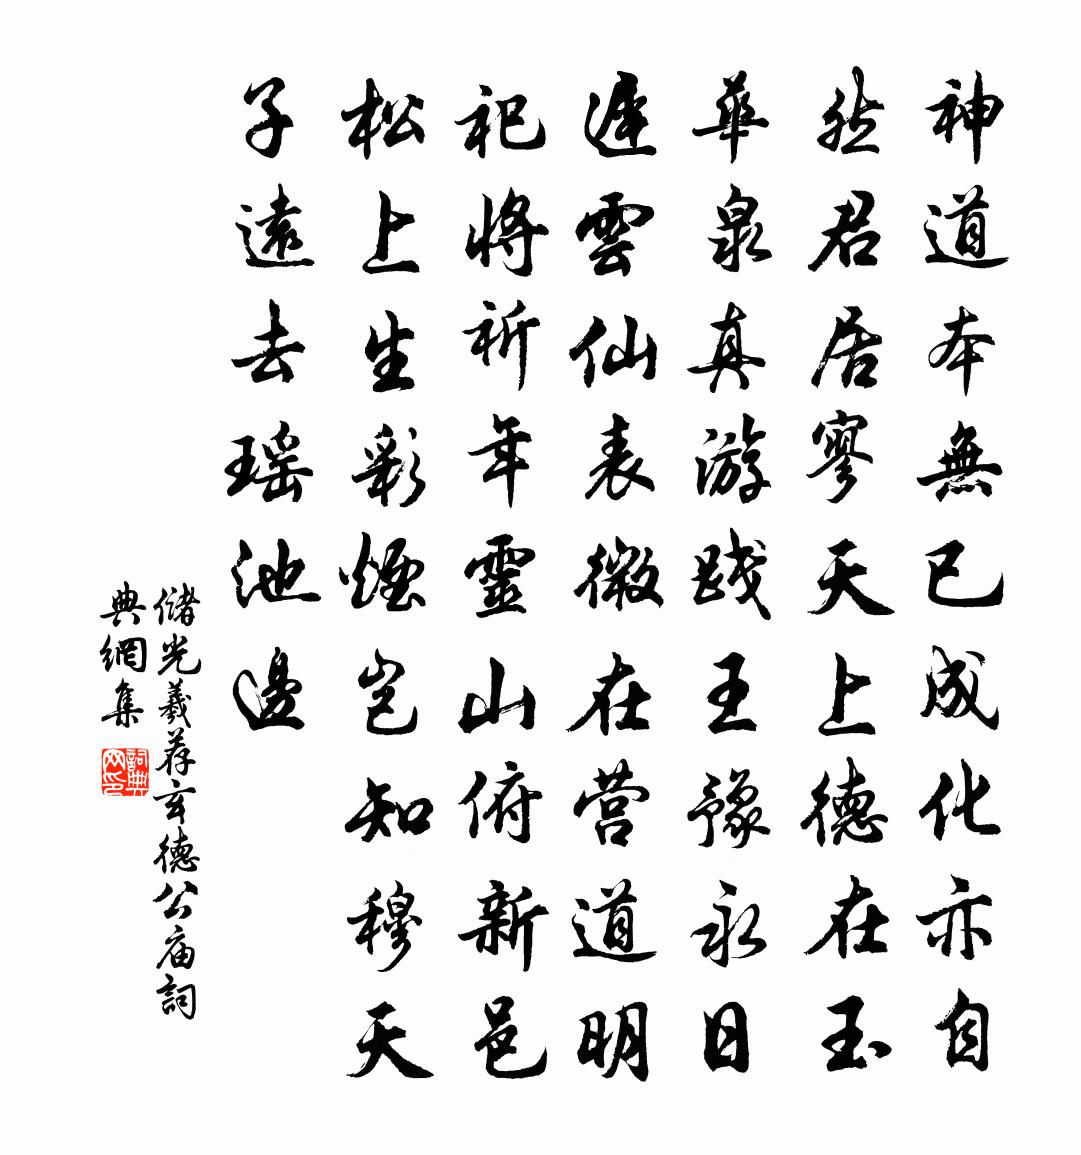 神道本無已成化亦自
然君居寥天上德在玉
華泉真游踐王豫永日
遲雲仙表微在营道明
祀將祈年靈山俯新邑
松上生彩煙岂知穆天
子遠去瑶池邊
儲光羲荐玄德公庙詞
典網集
詞典网印